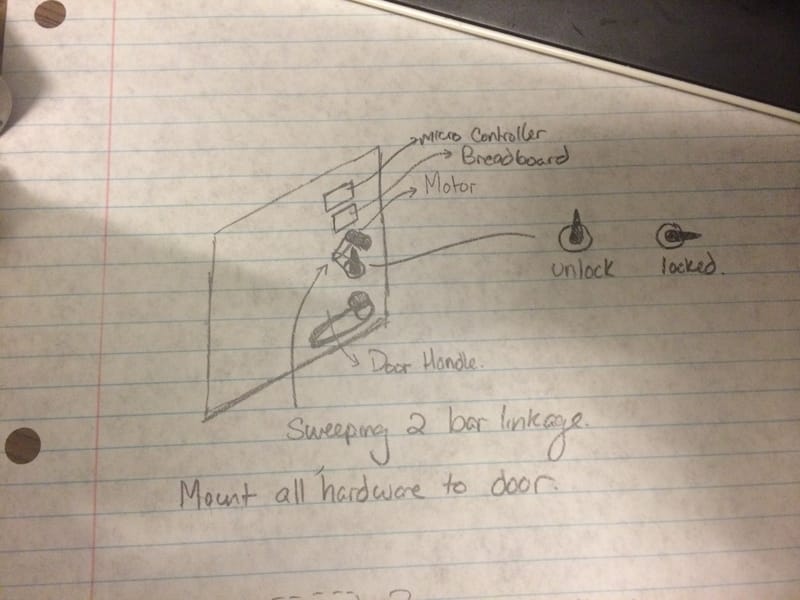 Micro Controller
Breadboard
Motor
unlock locked.
Door Handle.
Sweeping 2 bar linkage.
Mount all hardware to door.
?